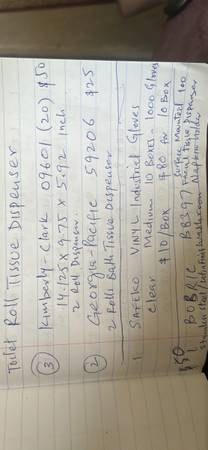 Toilet Roll Tissue Dispenser
3 Kimberly-Clark 09601 (20) $50
14.125 x 9.75 x 5.92 inch
2 Roll Dispenser
2 Georgia-Pacific 59206 $25
2 Rolls Bath Tissue Dispenser
1 SAFEKO VINYL Industrial Gloves
Clear Medium 10 Boxes - 1000 Gloves
$10/Box $80 for 10 Box
$50
1 BOBRIC B8397 Surface Mounted
Stainless Steel